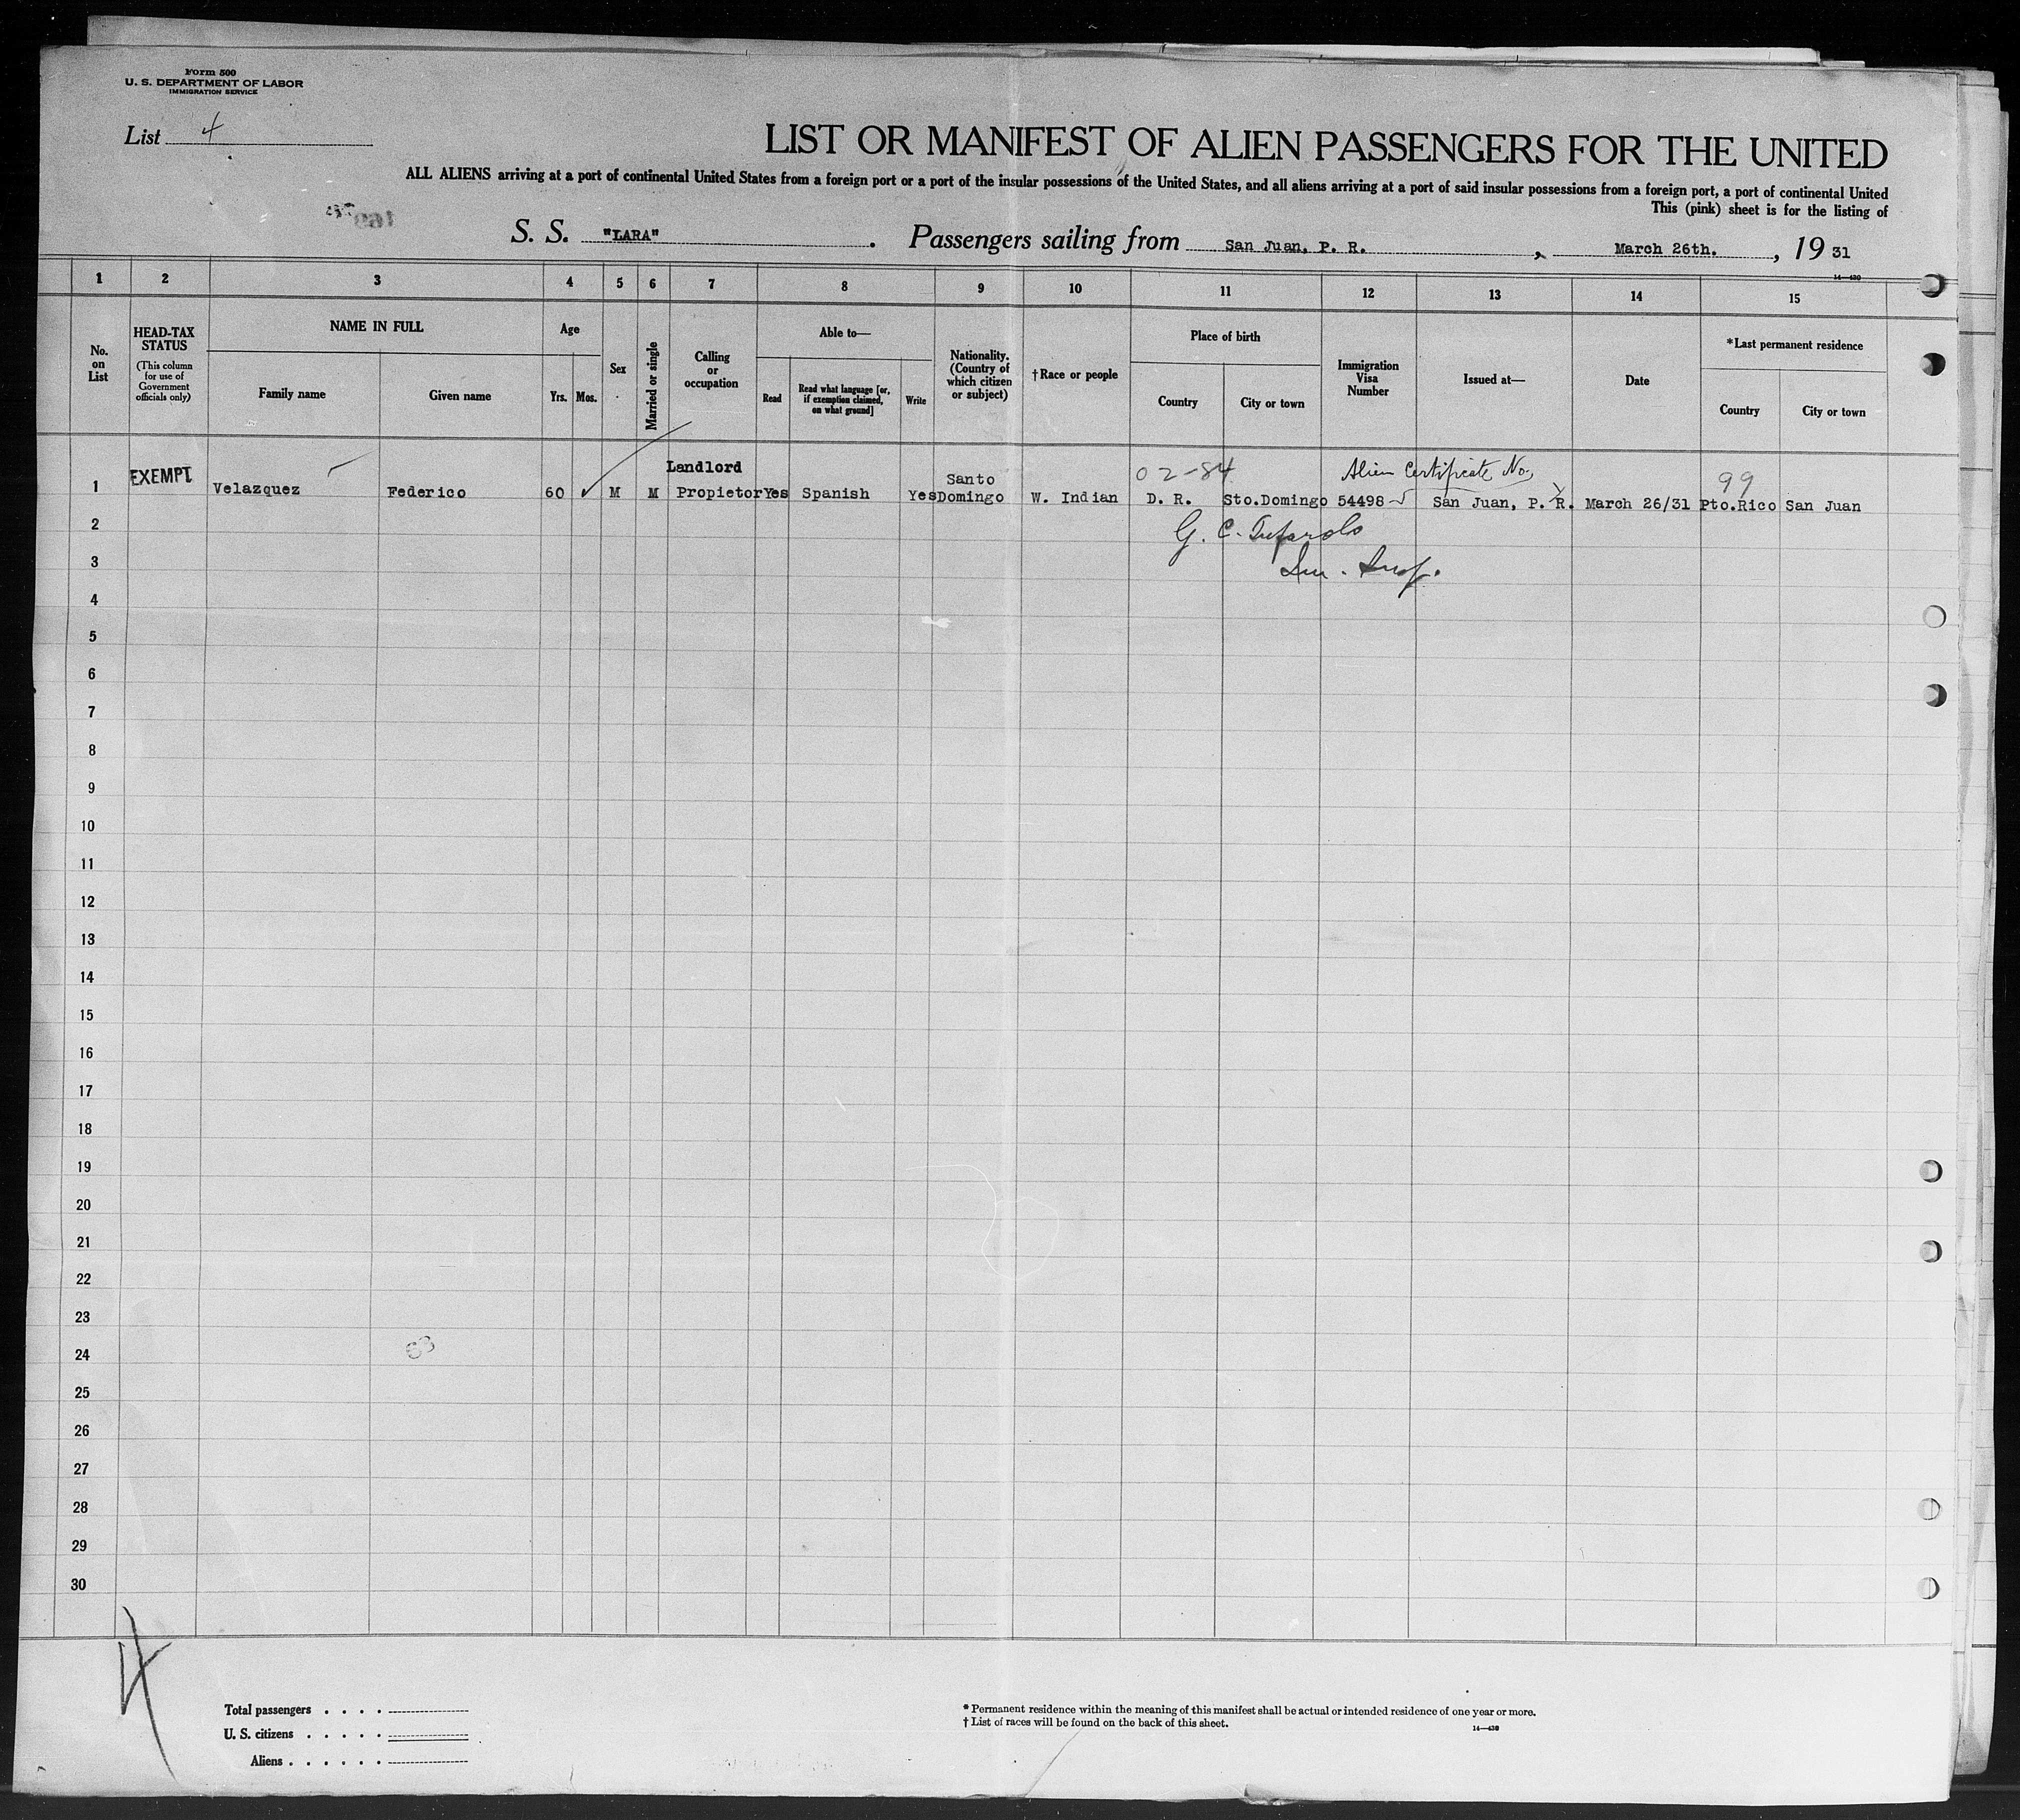 Form 500
U. S. DEPARTMENT OF LABOR
IMMIGRATION SERVICE
List 4
LIST OR MANIFEST OF ALIEN PASSENGERS FOR THE UNITED
ALL ALIENS arriving at a port of continental United States from a foreign port or a port of the insular possessions of the United States, and all aliens arriving at a port of said insular possessions from a foreign port, a port of continental United
This (pink) sheet is for the listing of
S. S. "LARA". Passengers sailing from San Juan, P. R., March 26th., 19 31
14—430
1 2 3 4 5 6 7 8 9 10 11 12 13 14 15
No. on List
HEAD-TAX STATUS
(This column for use of Government officials only)
NAME IN FULL
Family name
Given name
Age
Yrs. Mos.
Sex
Married or single
Calling or occupation
Able to—
Read
Read what language [or, if exemption claimed, on what ground]
Write
Nationality. (Country of which citizen or subject)
†Race or people
Place of birth
Country
City or town
Immigration Visa Number
Issued at—
Date
*Last permanent residence
Country
City or town
EXEMPT Landlord Santo 02-84 Alien Certificate No. 99
1 Velazquez Federico 60 M M Propietor Yes Spanish Yes Domingo W. Indian D. R. Sto.Domingo 54498 San Juan, P. R. March 26/31 Pto.Rico San Juan
2 G. C.
3 Im. Insp.
4
5
6
7
8
9
10
11
12
13
14
15
16
17
18
19
20
21
22
23
24
63
25
26
27
28
29
30
4
Total passengers . . . .
U. S. citizens . . . . .
Aliens . . . . . .
* Permanent residence within the meaning of this manifest shall be actual or intended residence of one year or more.
† List of races will be found on the back of this sheet.
14—430